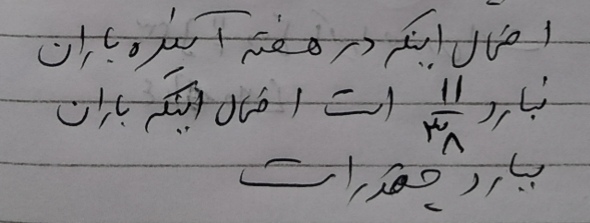 احتمال اینکه در هفته آینده باران
نبارد ۱۱/۳۸ است احتمال اینکه باران
ببارد چقدر است